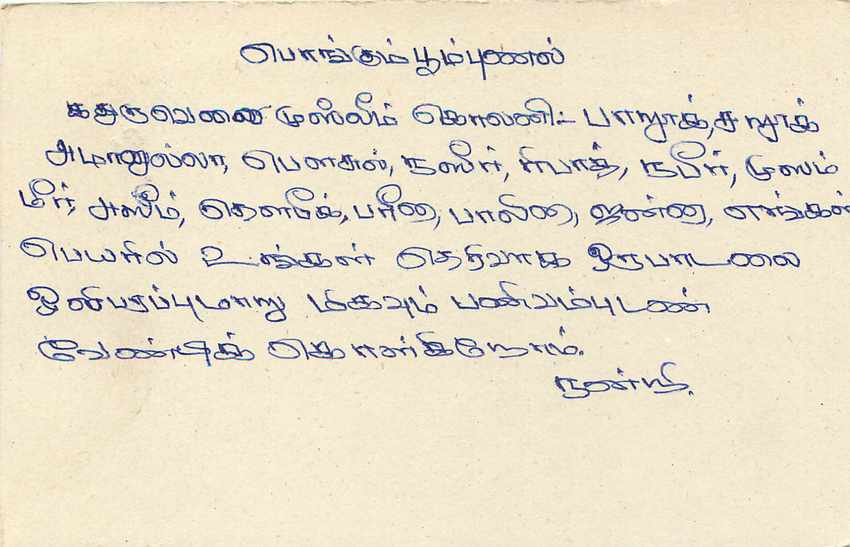 பொங்கும் பூம்புணல்
கதுருவெலை முஸ்லீம் கொலனி:- பாறூக், சறூக்
அமானுல்லா, பௌசுல், நஸீர், ரிபாத், நபீர், முஸம்
மீர், அஸீம், தௌபீக், பரீனா, பாலினா, ஜன்னா, எங்கள்
பெயரில் உங்கள் தெரிவாக ஒருபாடலை
ஒலிபரப்புமாறு மிகவும் பணிவம்புடண்
வேண்டிக் கொள்கிறோம்.
நன்றி.